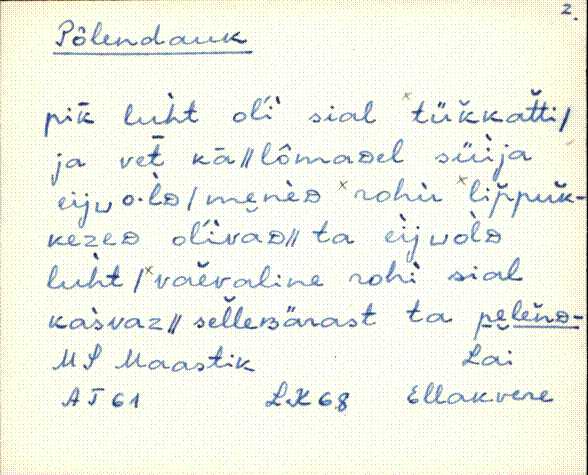 2.
Põlendauk
pik̄ luh̀t oĺì sial ˣtük̆katti/
ja vet̄ kā//lômaᴅel süi̇ja
eijᴗo·lᴅ/menèᴅ ˣrohù ˣlip̆puk̆-
kezeᴅ oĺivaᴅ// ta èijᴗòlᴅ
luh̀t/ˣvaĕvaline rohì sial
kàsvaz// sĕlleʙärast ta pelĕnᴅ-
MS Maastik Lai
AT 61 LK 68 Ellakvere